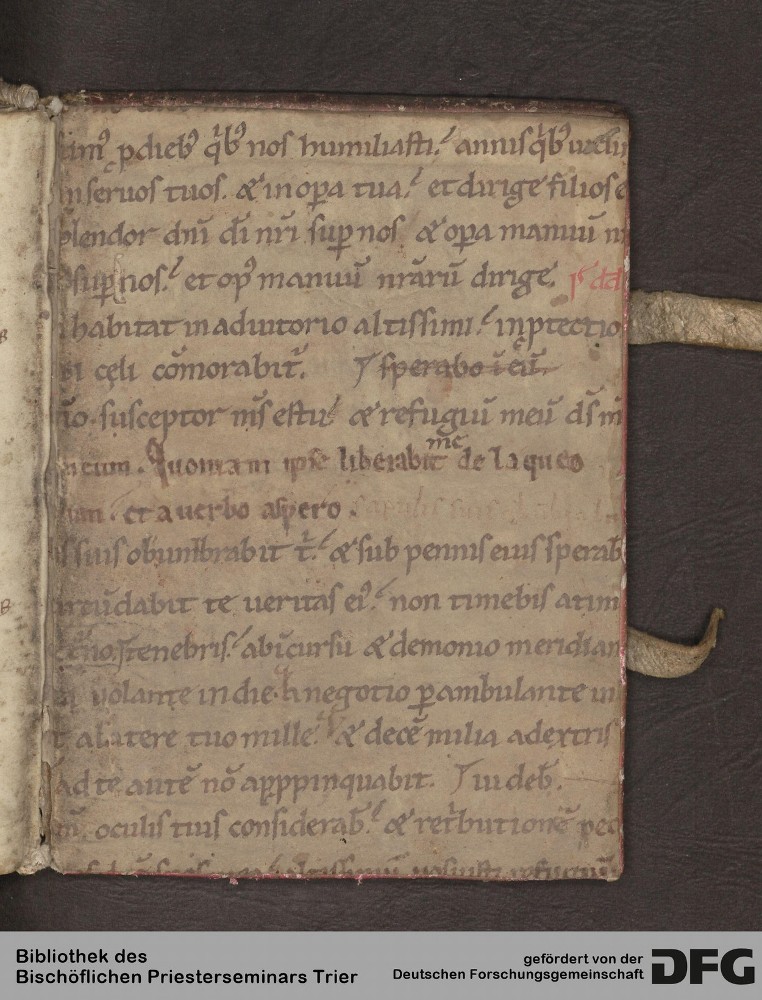 p dieb9 qͥb9 nos humiliasti. annis qͥb9
seruos tuos. & in opa tua. et dirige filios e
lendor dn̄i dī nr̄i sup nos. & opa manuū
sup nos. et op9 manuū nr̄arū dirige. ps dd
habitat in adiutorio altissimi. in ptectio
cęli cōmorabit̄. sperabo ī eū.
susceptor m̄s es tu & refugiū meū ds̄ m̄
Quoniam ipse liberabit me de laqueo
et a uerbo aspero.
suis obumbrabit t̄. & sub pennis eius sperab̄
dabit te ueritas ei9. non timebis a tim
tenebris. ab īcursu & demonio meridian
uolante in die. a negotio pambulante in
a latere tuo mille. & decē milia a dextris
ad te autē nō appinquabit. uideb̄.
oculis tuis considerab̄. & ret̄butionē pec
Bibliothek des
Bischöflichen Priesterseminars Trier
gefördert von der
Deutschen Forschungsgemeinschaft
DFG